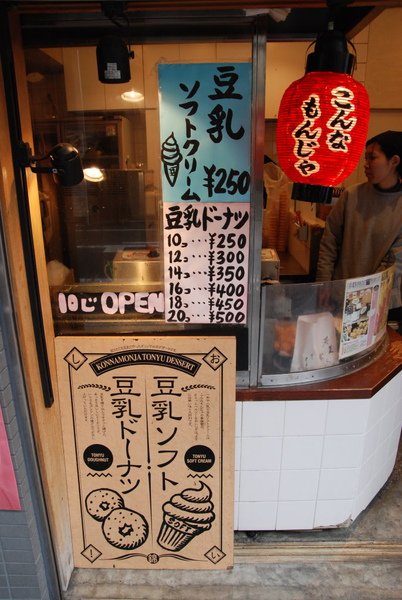 豆乳
ソフトクリーム
¥250
豆乳ドーナツ
10コ…¥250
12コ…¥300
14コ…¥350
16コ…¥400
18コ…¥450
20コ…¥500
10じOPEN
こんな
もんじゃ
お
し
KONNAMONJA TONYU DESSERT
豆乳ソフト
豆乳ドーナツ
TONYU
DOUGHNUT
TONYU
SOFT CREAM
SOFT
い